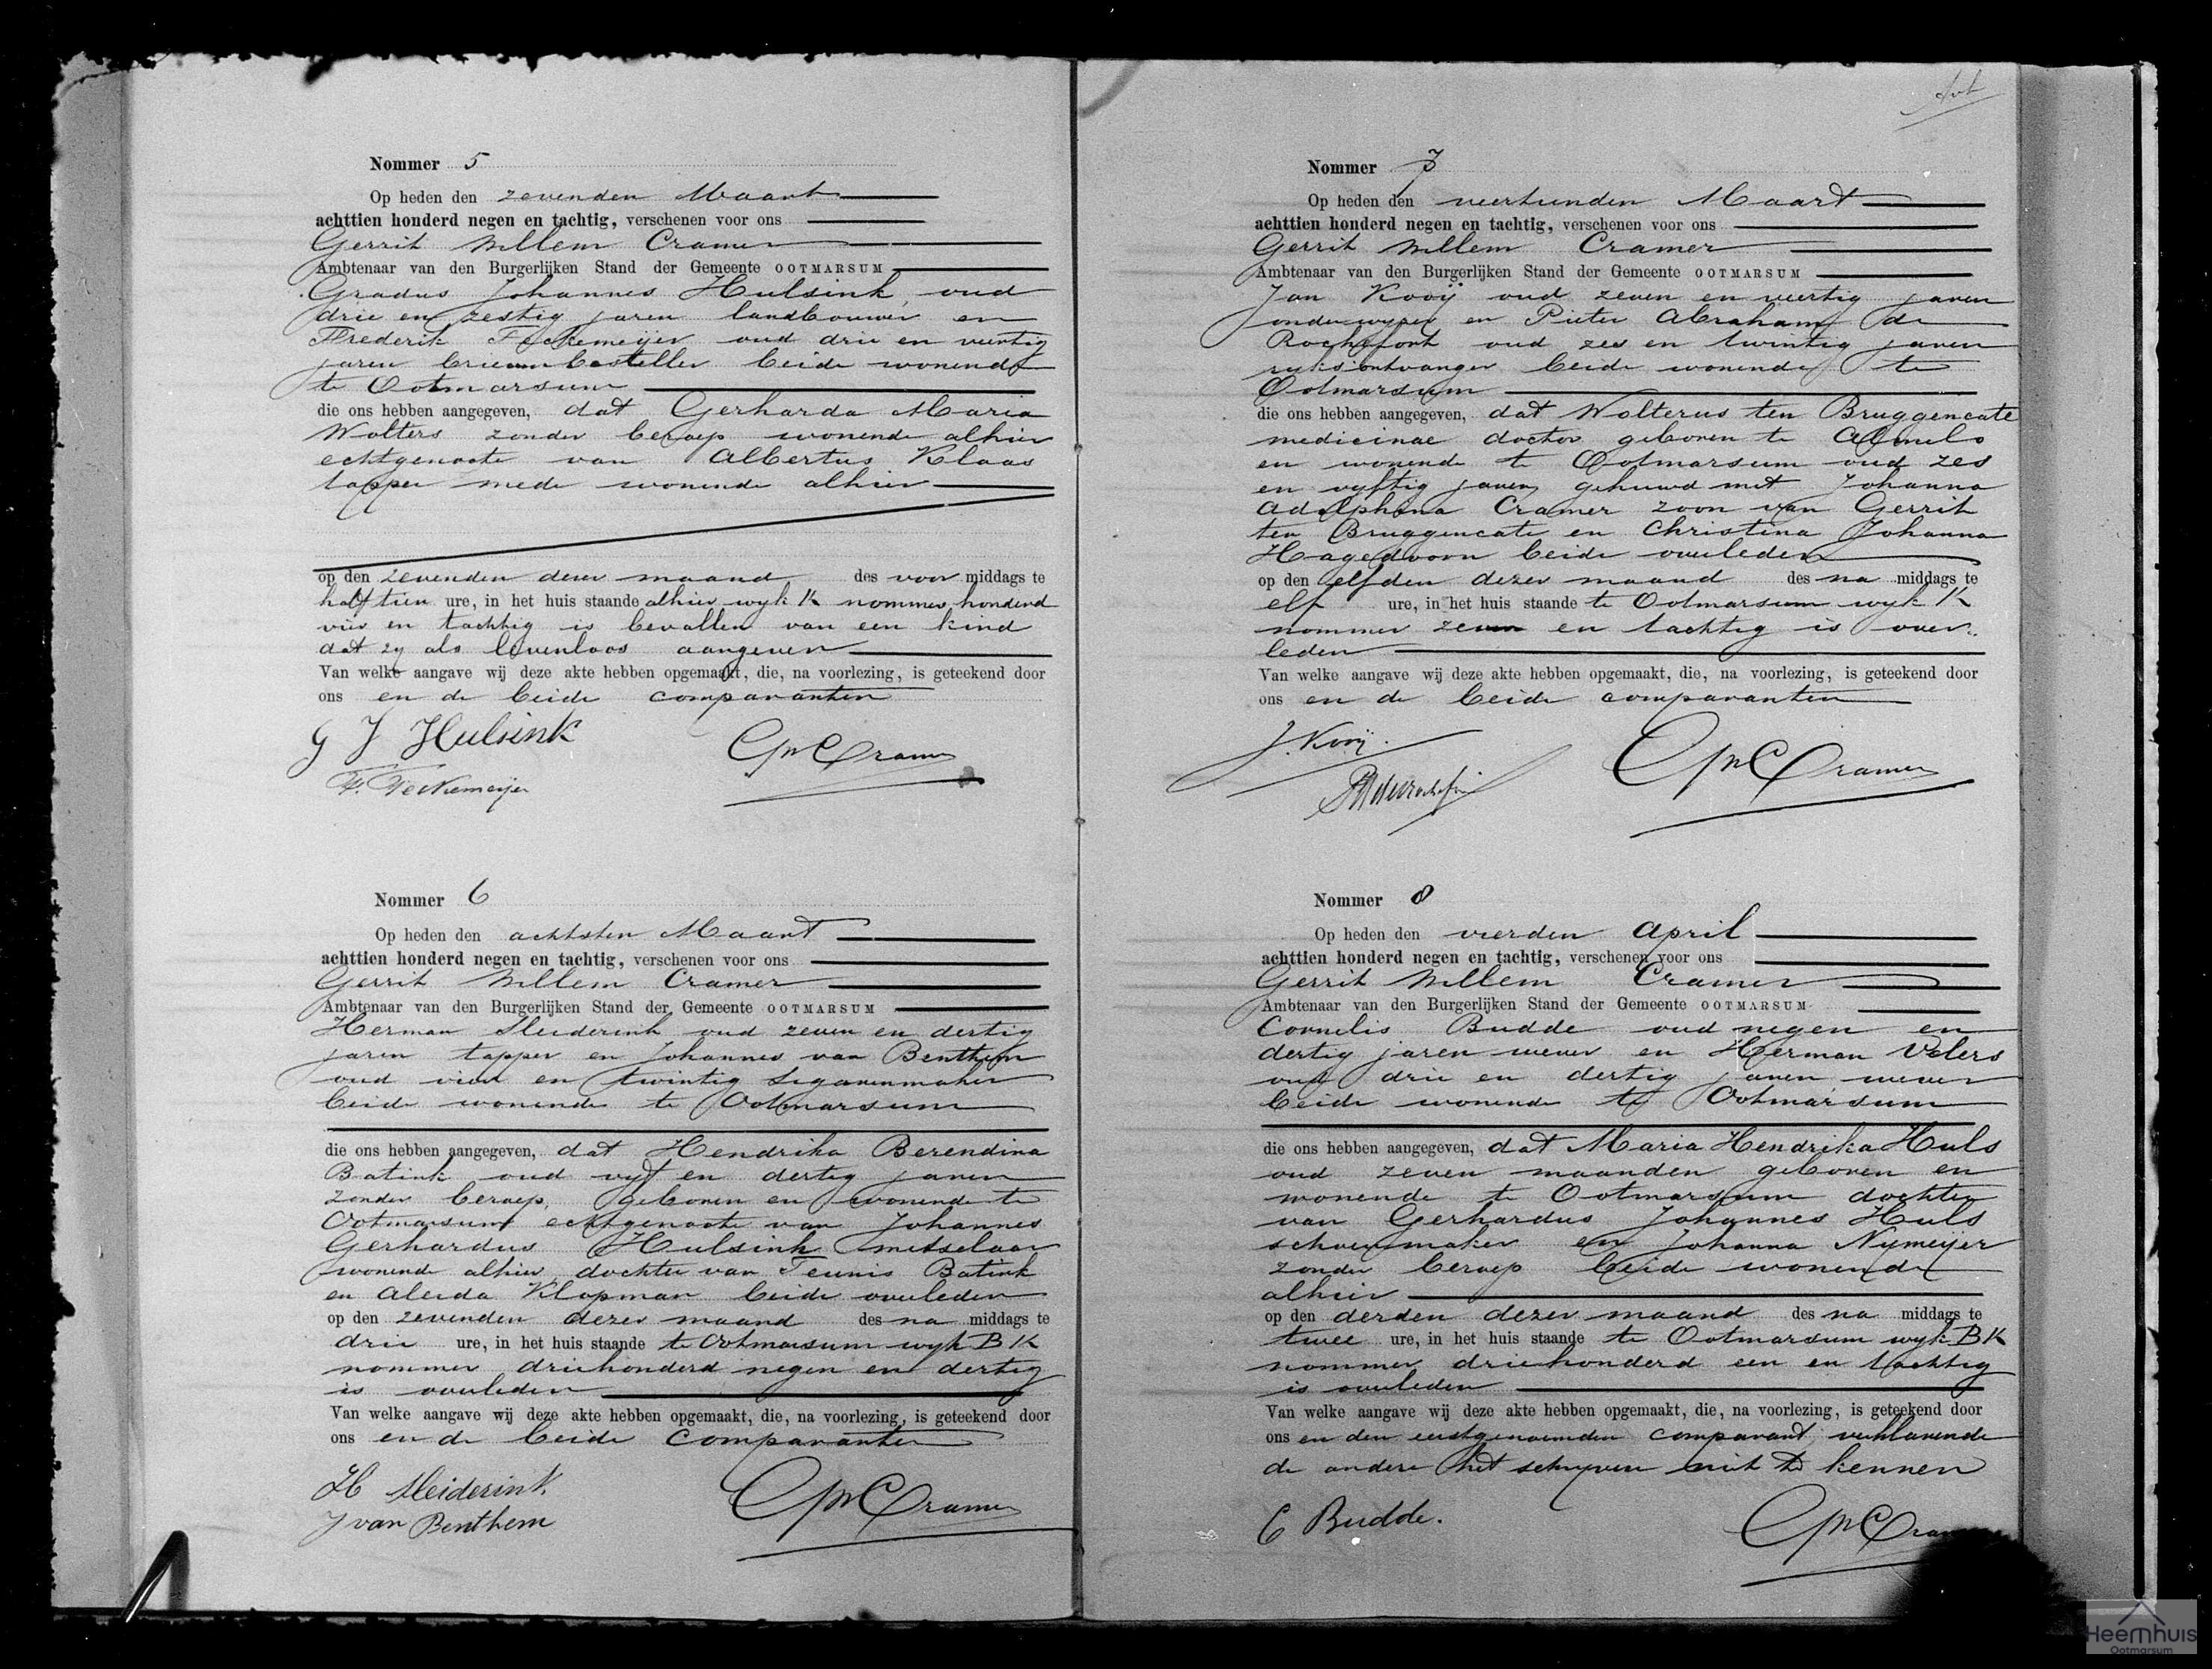 Nommer 5
Op heden den zevenden Maart
achttien honderd negen en tachtig, verschenen voor ons
Gerrit Willem Cramer
Ambtenaar van den Burgerlijken Stand der Gemeente OOTMARSUM
Gradus Johannes Hulsink, oud
drie en zestig jaren landbouwer en
Frederik Feckemeijer oud drie en veertig
jaren brievenbesteller beide wonende
te Ootmarsum
die ons hebben aangegeven, dat Gerharda Maria
Wolters zonder beroep wonende alhier
echtgenoote van Albertus Klaas
tapper mede wonende alhier
op den zevenden dezer maand des voor middags te
half tien ure, in het huis staande alhier wyk K nommer honderd
vier en tachtig is bevallen van een kind
dat zy als levenloos aangeven
Van welke aangave wij deze akte hebben opgemaakt, die, na voorlezing, is geteekend door
ons en de beide comparanten
G J Hulsink
GWCramer
F. Feckemeijer
Nommer 6
Op heden den achtsten Maart
achttien honderd negen en tachtig, verschenen voor ons
Gerrit Willem Cramer
Ambtenaar van den Burgerlijken Stand der Gemeente OOTMARSUM
Herman Sleiderink oud zeven en dertig
jaren tapper en Johannes van Benthem
oud vier en twintig sigarenmaker
beide wonende te Ootmarsum
die ons hebben aangegeven, dat Hendrika Berendina
Batink oud vyf en dertig jaren
zonder beroep, geboren en wonende te
Ootmarsum echtgenoote van Johannes
Gerhardus Hulsink metselaar
wonende alhier dochter van Teunis Batink
en Aleida Klopman beide overleden
op den zevenden dezer maand des na middags te
drie ure, in het huis staande te Ootmarsum wyk B K
nommer driehonderd negen en dertig
is overleden
Van welke aangave wij deze akte hebben opgemaakt, die, na voorlezing, is geteekend door
ons en de beide comparanten
H Sleiderink
J van Benthem
GWCramer
Nommer 7
Op heden den veertienden Maart
achttien honderd negen en tachtig, verschenen voor ons
Gerrit Willem Cramer
Ambtenaar van den Burgerlijken Stand der Gemeente OOTMARSUM
Jan Kooÿ oud zeven en veertig jaren
onderwyzer en Pieter Abraham de
Rochefort oud zes en twintig jaren
ryksontvanger beide wonende te
Ootmarsum
die ons hebben aangegeven, dat Wolterus ten Bruggencate
medicinae doctor geboren te Almelo
en wonende te Ootmarsum oud zes
en vyftig jaren gehuwd met Johanna
Adolphina Cramer zoon van Gerrit
ten Bruggencate en Christina Johanna
Hagedoorn beide overleden
op den elfden dezer maand des na middags te
elf ure, in het huis staande te Ootmarsum wyk K
nommer zeven en tachtig is over-
leden
Van welke aangave wij deze akte hebben opgemaakt, die, na voorlezing, is geteekend door
ons en de beide comparanten
J. Kooij.
GWCramer
Nommer 8
Op heden den vierden April
achttien honderd negen en tachtig, verschenen voor ons
Gerrit Willem Cramer
Ambtenaar van den Burgerlijken Stand der Gemeente OOTMARSUM
Cornelis Budde oud negen en
dertig jaren wever en Herman Velers
oud drie en dertig jaren wever
beide wonende te Ootmarsum
die ons hebben aangegeven, dat Maria Hendrika Huls
oud zeven maanden geboren en
wonende te Ootmarsum dochter
van Gerhardus Johannes Huls
schoenmaker en Johanna Nymeijer
zonder beroep beide wonende
alhier
op den derden dezer maand des na middags te
twee ure, in het huis staande te Ootmarsum wyk B K
nommer driehonderd een en tachtig
is overleden
Van welke aangave wij deze akte hebben opgemaakt, die, na voorlezing, is geteekend door
ons en den eerstgenoemden comparant verklarende
de andere het schryven niet te kennen
C Budde.
GWCramer
Heemhuis
Ootmarsum